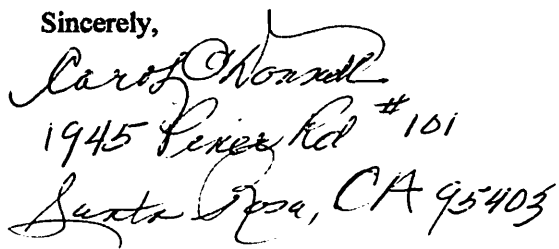 Sincerely,
Carol O'Donnell
1945 Piner Rd #101
Santa Rosa, CA 95403